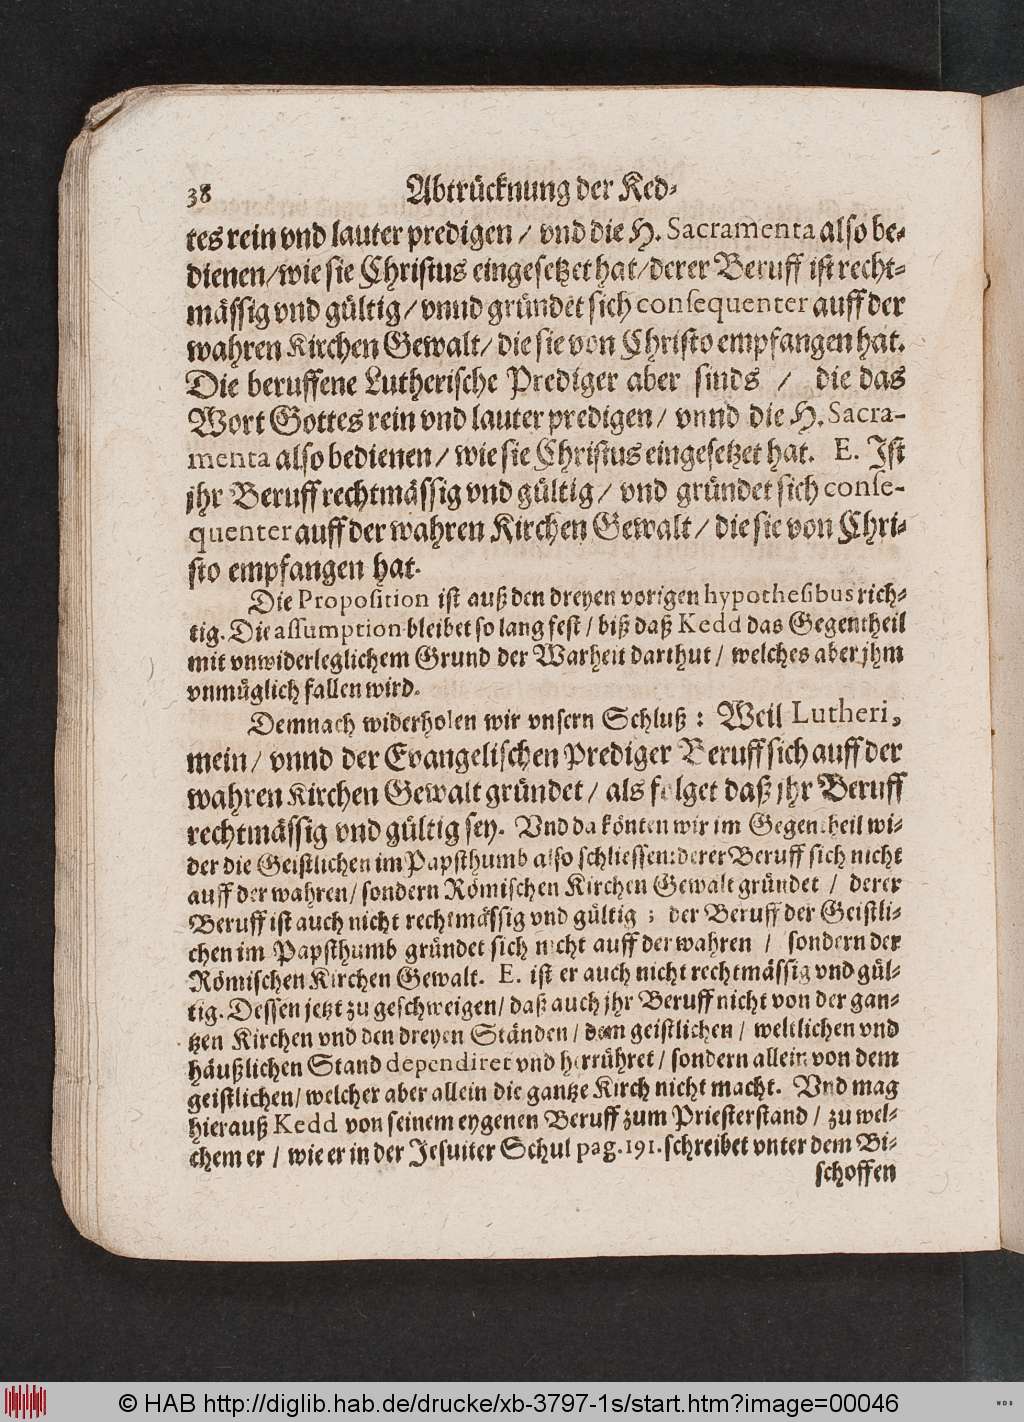 38 Abtrücknung der Ked-
tes rein vnd lauter predigen / vnd die H. Sacramenta also be-
dienen/wie sie Christus eingesetzet hat/derer Beruff ist recht-
mässig vnd gültig/ vnnd gründet sich consequenter auff der
wahren Kirchen Gewalt/ die sie von Christo empfangen hat.
Die beruffene Lutherische Prediger aber sinds / die das
Wort Gottes rein vnd lauter predigen/ vnnd die H. Sacra-
menta also bedienen/ wie sie Christus eingesetzet hat. E. Ist
jhr Beruff rechtmässig vnd gültig/ vnd gründet sich conse-
quenter auff der wahren Kirchen Gewalt/ die sie von Chri-
sto empfangen hat.
Die Proposition ist auß den dreyen vorigen hypothesibus rich-
tig. Die assumption bleibet so lang fest/ biß daß Kedd das Gegentheil
mit vnwiderleglichem Grund der Warheit darthut/ welches aber jhm
vnmüglich fallen wird.
Demnach widerholen wir vnsern Schluß: Weil Lutheri,
mein/ vnnd der Evangelischen Prediger Beruff sich auff der
wahren Kirchen Gewalt gründet/ als folget daß jhr Beruff
rechtmässig vnd gültig sey. Vnd da könten wir im Gegentheil wi-
der die Geistlichen im Papsthumb also schliessen: derer Beruff sich nicht
auff der wahren/ sondern Römischen Kirchen Gewalt gründet / derer
Beruff ist auch nicht rechtmässig vnd gültig; der Beruff der Geistli-
chen im Papsthumb gründet sich nicht auff der wahren / sondern der
Römischen Kirchen Gewalt. E. ist er auch nicht rechtmässig vnd gül-
tig. Dessen jetzt zu geschweigen/ daß auch jhr Beruff nicht von der gan-
tzen Kirchen vnd den dreyen Ständen/ dem geistlichen/ weltlichen vnd
häußlichen Stand dependiret vnd herrühret/ sondern allein von dem
geistlichen/ welcher aber allein die gantze Kirch nicht macht. Vnd mag
hierauß Kedd von seinem eygenen Beruff zum Priesterstand/ zu wel-
chem er/ wie er in der Jesuiter Schul pag. 191. schreibet vnter dem Bi-
schoffen
© HAB http://diglib.hab.de/drucke/xb-3797-1s/start.htm?image=00046